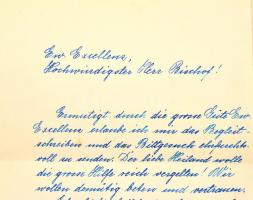 Ew. Excellenz,
Hochwürdigster Herr Bischof!
Ermutigt durch die grosse Güte Ew.
Excellenz erlaube ich mir das Begleit-
schreiben und das Bittgesuch ehrfurchts-
voll zu senden. Der liebe Heiland wolle
die grosse Hilfe reich vergelten! Wir
wollen demütig beten und vertrauen.